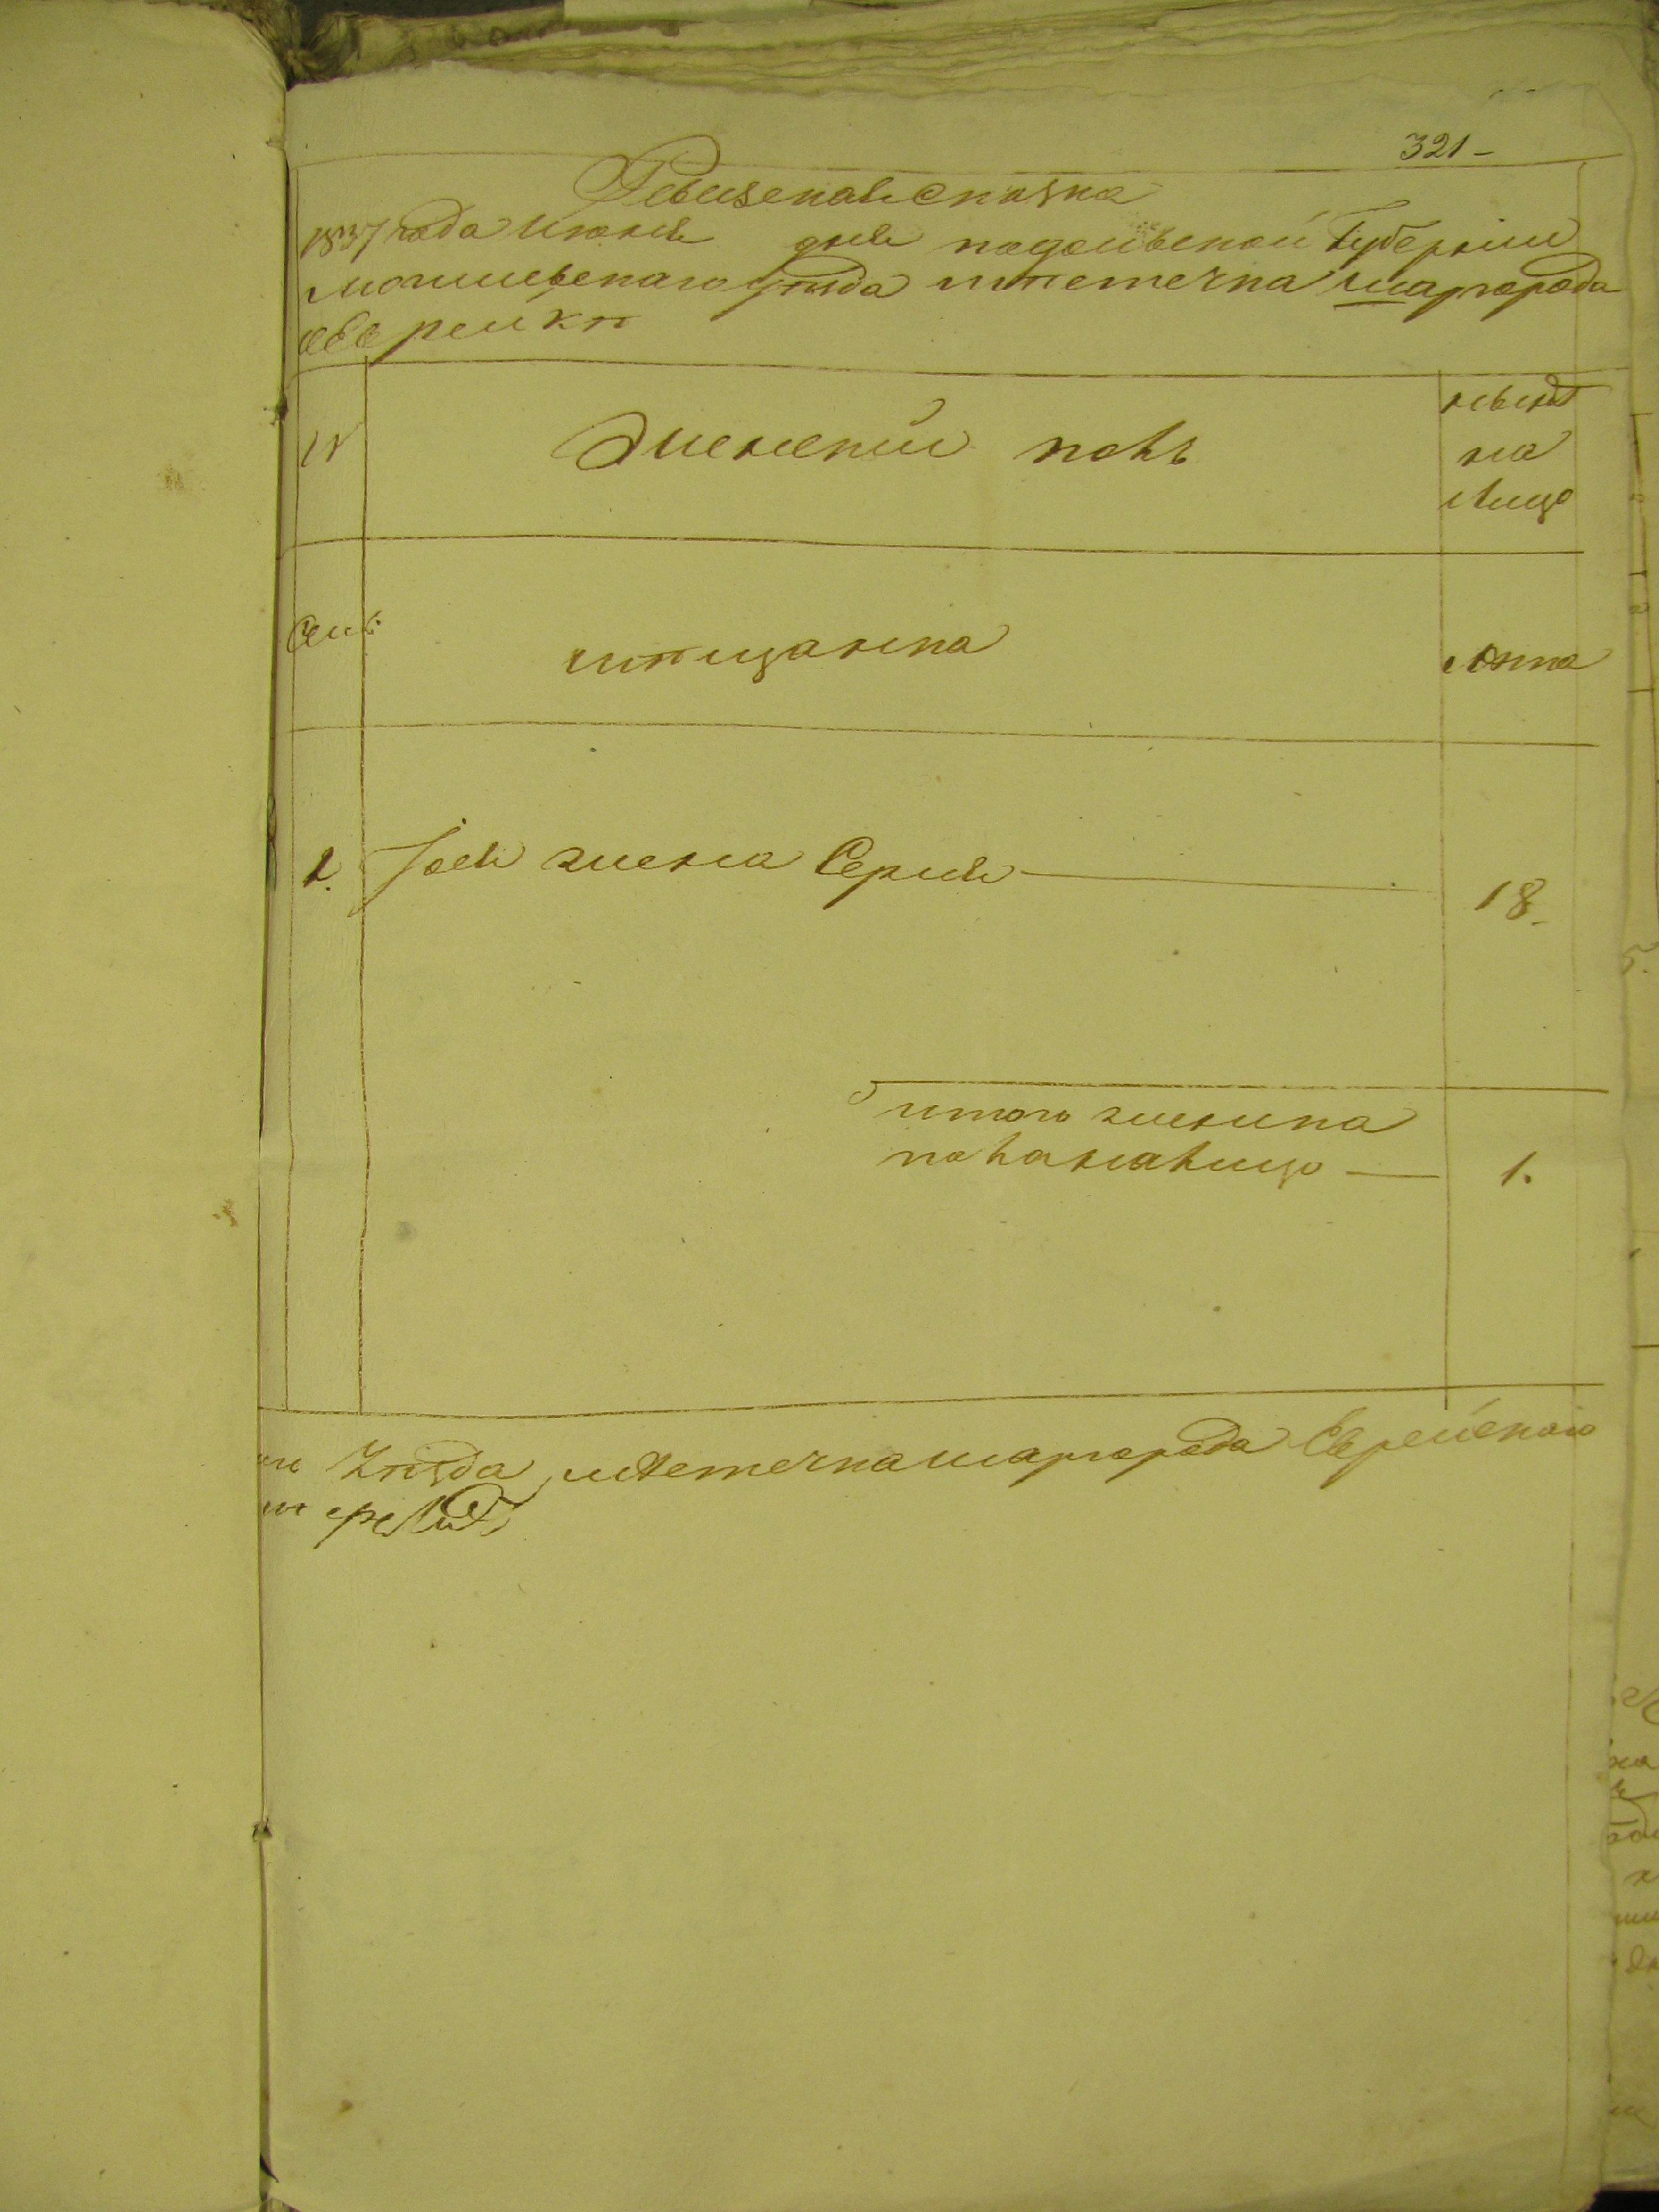 321-
Ревизская Сказка
1837 года июня дня подольской Губернии
могилевскаго уѣзда мѣстечка шаргорода
еврейкѣ
№
Женский полъ
нынѣ
на
лицо
Сем:
мѣщанка
лѣта
1. Іося жена Сериля
18
итого женска
пола налицо
1.
Уѣзда мѣстечка шаргорода Еврейскаго